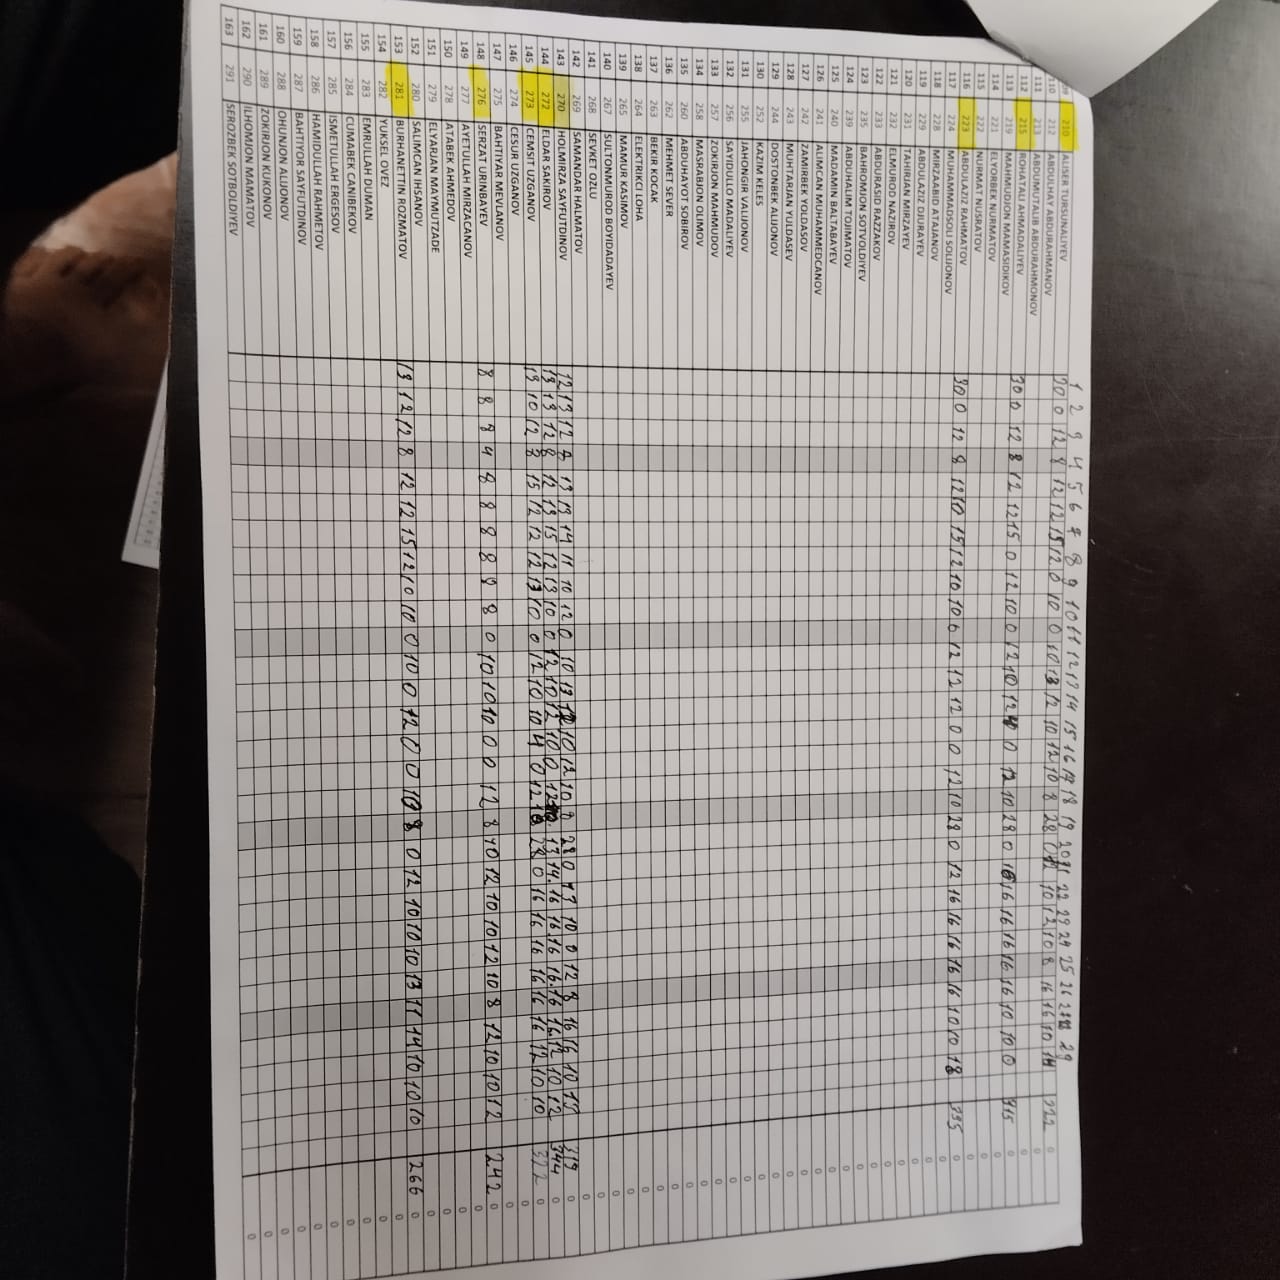 1 2 3 4 5 6 7 8 9 10 11 12 13 14 15 16 17 18 19 20 22 24 25 26 29
210 ALISER TURSUNALIYEV
110 212 ABDULHAY ABDURAHMANOV 30 0 12 8 12 12 15 12 0 10 0 10 13 12 10 12 10 8 28 10 12 10 8 16 16 10 0
111 213 ABDUMUTALIB ABDURAHMONOV 0
112 215 ROHATALI AHMADALIYEV 0
113 219 MAHMUDJON MAMASIDIKOV 30 0 12 8 12 12 15 0 12 10 0 12 10 12 0 12 10 28 0 16 16 16 16 16 16 10 10 0 0
114 221 ELYORBEK NURMATOV 0
115 222 NURMAT NUSRATOV 0
116 223 ABDULAZIZ RAHMATOV 0
117 224 MUHAMMADSOLI SOLIJONOV 30 0 12 8 12 10 15 12 10 10 0 12 12 12 0 0 12 10 28 0 12 16 16 16 16 16 10 10 18 0
118 228 MIRZAABID ATAJANOV 0
119 229 ABDULAZIZ DJURAYEV 0
120 231 TAHIRJAN MIRZAYEV 0
121 232 ELMUROD NAZIROV 0
122 233 ABDURASID RAZZAKOV 0
123 235 BAHROMJON SOTVOLDIYEV 0
124 239 ABDUHALIM TOJIMATOV 0
125 240 MADAMIN BALTABAYEV 0
126 241 ALIMCAN MUHAMMEDCANOV 0
127 242 ZAMIRBEK YOLDASOV 0
128 243 MUHTARJAN YULDASEV 0
129 244 DOSTONBEK ALIJONOV 0
130 252 KAZIM KELES 0
131 255 JAHONGIR VALIJONOV 0
132 256 SAYIDULLO MADALIYEV 0
133 257 ZOKIRJON MAHMUDOV 0
134 258 MASRABJON OLIMOV 0
135 260 ABDUHAYOT SOBIROV 0
136 262 MEHMET SEVER 0
137 263 BEKIR KOCAK 0
138 264 ELEKTRIKCI LOHA 0
139 265 MAMUR KASIMOV 0
140 267 SULTONMUROD BOYIDADAYEV 0
141 268 SEVKET OZLU 0
142 269 SAMANDAR HALMATOV 0
143 270 HOLMIRZA SAYFUTDINOV 12 13 12 8 13 13 14 11 10 12 0 10 13 10 12 10 8 28 0 13 10 0 12 8 16 16 10 13 319 0
144 272 ELDAR SAKIROV 13 13 12 8 12 13 15 12 13 10 0 12 10 12 10 0 12 13 14 16 16 16 16 16 16 12 10 12 344 0
145 273 CEMSIT UZGANOV 13 10 12 8 15 12 12 12 13 10 0 12 10 10 4 0 12 28 0 16 16 16 16 16 16 12 10 10 322 0
146 274 CESUR UZGANOV 0
147 275 BAHTIYAR MEVLANOV 0
148 276 SERZAT URINBAYEV 8 8 8 4 8 8 8 8 8 8 0 10 10 10 0 0 12 8 10 12 10 10 12 10 8 12 10 10 12 242 0
149 277 AYETULLAH MIRZACANOV 0
150 278 ATABEK AHMEDOV 0
151 279 ELYARJAN MAYMUTZADE 0
152 280 SALIMCAN IHSANOV 0
153 281 BURHANETTIN ROZMATOV 13 12 12 8 12 12 15 12 10 10 0 10 0 12 0 0 10 8 0 12 10 10 10 13 11 14 10 10 10 266 0
154 282 YUKSEL OVEZ 0
155 283 EMRULLAH DUMAN 0
156 284 CUMABEK CANIBEKOV 0
157 285 ISMETULLAH ERGESOV 0
158 286 HAMIDULLAH RAHMETOV 0
159 287 BAHTIYOR SAYFUTDINOV 0
160 288 OHUNJON ALIJONOV 0
161 289 ZOKIRJON KUKONOV 0
162 290 ILHOMJON MAMATOV 0
163 291 SEROZBEK SOTBOLDIYEV